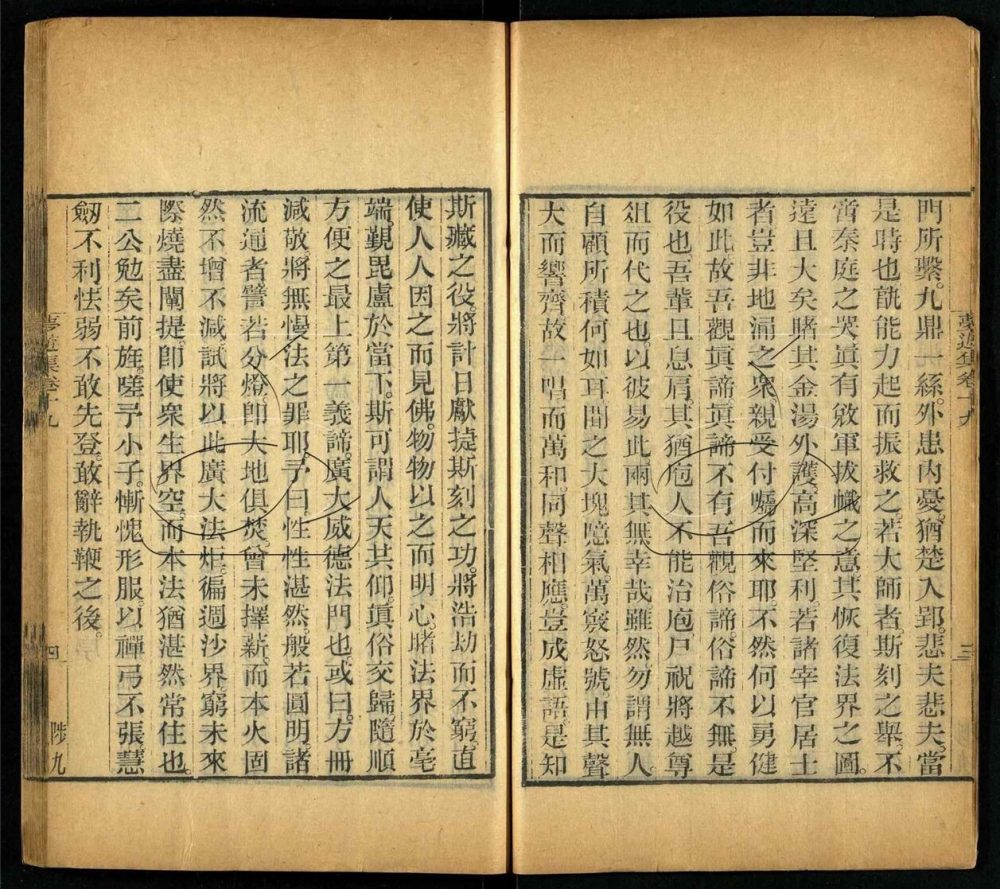 門所繫。九鼎一絲。外患內憂。猶楚入郢。悲夫悲夫。當
是時也。孰能力起而振救之。若大師者。斯刻之舉。不
啻秦庭之哭。眞有斂軍拔幟之意。其恢復法界之圖。
遠且大矣。睹其金湯外護。高深堅利。若諸宰官居士
者。豈非地涌之衆。親受付囑而來耶。不然何以勇健
如此。故吾觀眞諦。眞諦不有。吾觀俗諦。俗諦不無。是
役也。吾輩且息肩。其猶庖人不能治庖。尸祝將越尊
俎而代之也。以彼易此。兩其無幸哉。雖然。勿謂無人
自顧所積何如耳。聞之大塊噫氣。萬竅怒號。由其聲
大而響齊。故一唱而萬和。同聲相應。豈成虛語。是知
夢遊集卷十九
三
斯藏之役。將計日獻捷。斯刻之功。將浩劫而不窮。直
使人人因之而見佛。物物以之而明心。睹法界於毫
端。覲毘盧於當下。斯可謂人天共仰。眞俗交歸。隨順
方便之最上第一義諦。廣大威德法門也。或曰。方冊
減敬。將無慢法之罪耶。予曰。性性湛然。般若圓明。諸
流通者。譬若分燈。卽大地俱焚。曾未擇薪。而本火固
然。不增不減。試將以此廣大法炬。徧週沙界。窮未來
際。燒盡闡提。卽使衆生界空。而本法猶湛然常住也。
二公勉矣前旌。嗟予小子。慚愧形服。以禪弓不張。慧
劔不利。怯弱不敢先登。敢辭執鞭之後。
夢遊集卷十九
四
陟九